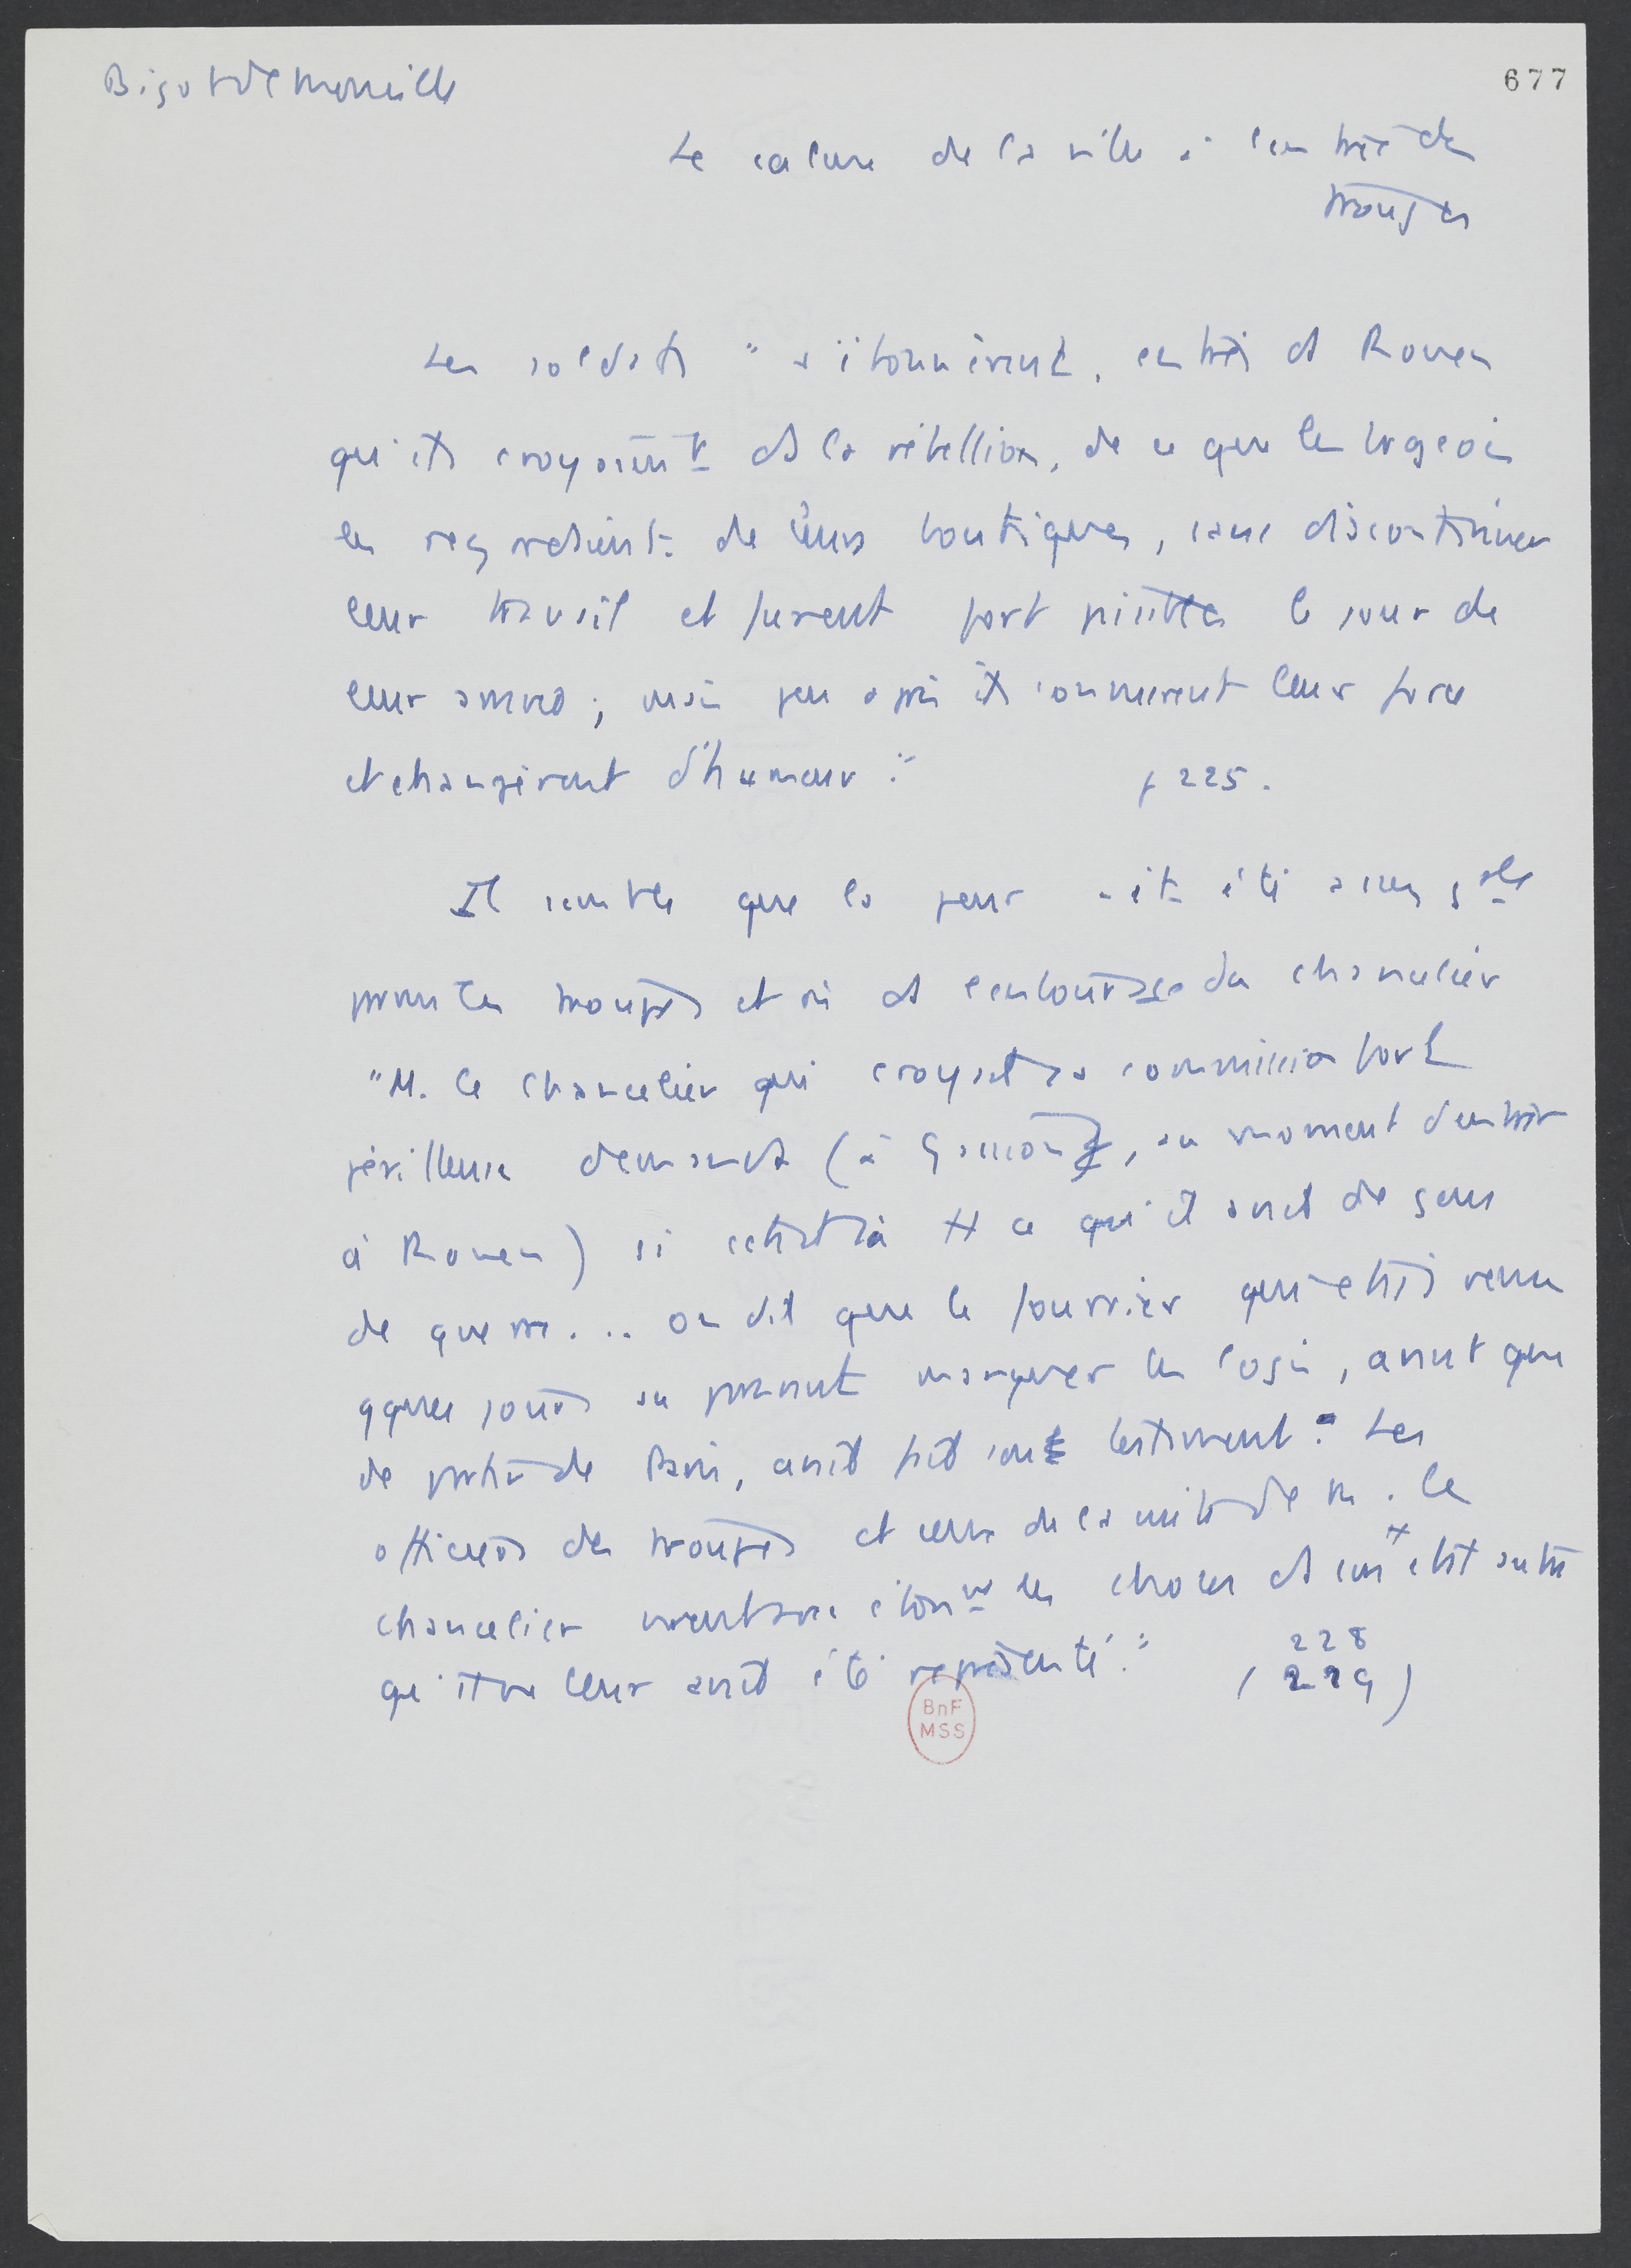 Bigot de Monville
677
Le calme de la ville à l'entrée des
troupes
Les soldats "s'étonnèrent, entrés ds Rouen
qu'ils croyaient ds la rébellion, de ce que les bgeois
les regardaient de leurs boutiques, sans discontinuer
leur travail et furent fort paisibles le jour de
leur arrivée ; mais peu après ils connurent leur force
et changèrent d'humeur."
p 225.
Il semble que la peur ait été assez gale
parmi les troupes et ds l'entourage du chancelier
"M. le chancelier qui croyait sa commission fort
périlleuse demanda (à Gassion, au moment d'entrer
à Rouen) si c'était là tt ce qu'il avait de gens
de guerre... on dit que le fourrier qui était venu
qques jours auparavant marquer les logis, avant que
de partir de Paris, avait fait son testament. Les
officiers des troupes et ceux de la suite de M. le
chancelier étonnés les choses ds un état autre
qu'il ne leur avait été représenté."
( 228
229 )
BnF
MSS